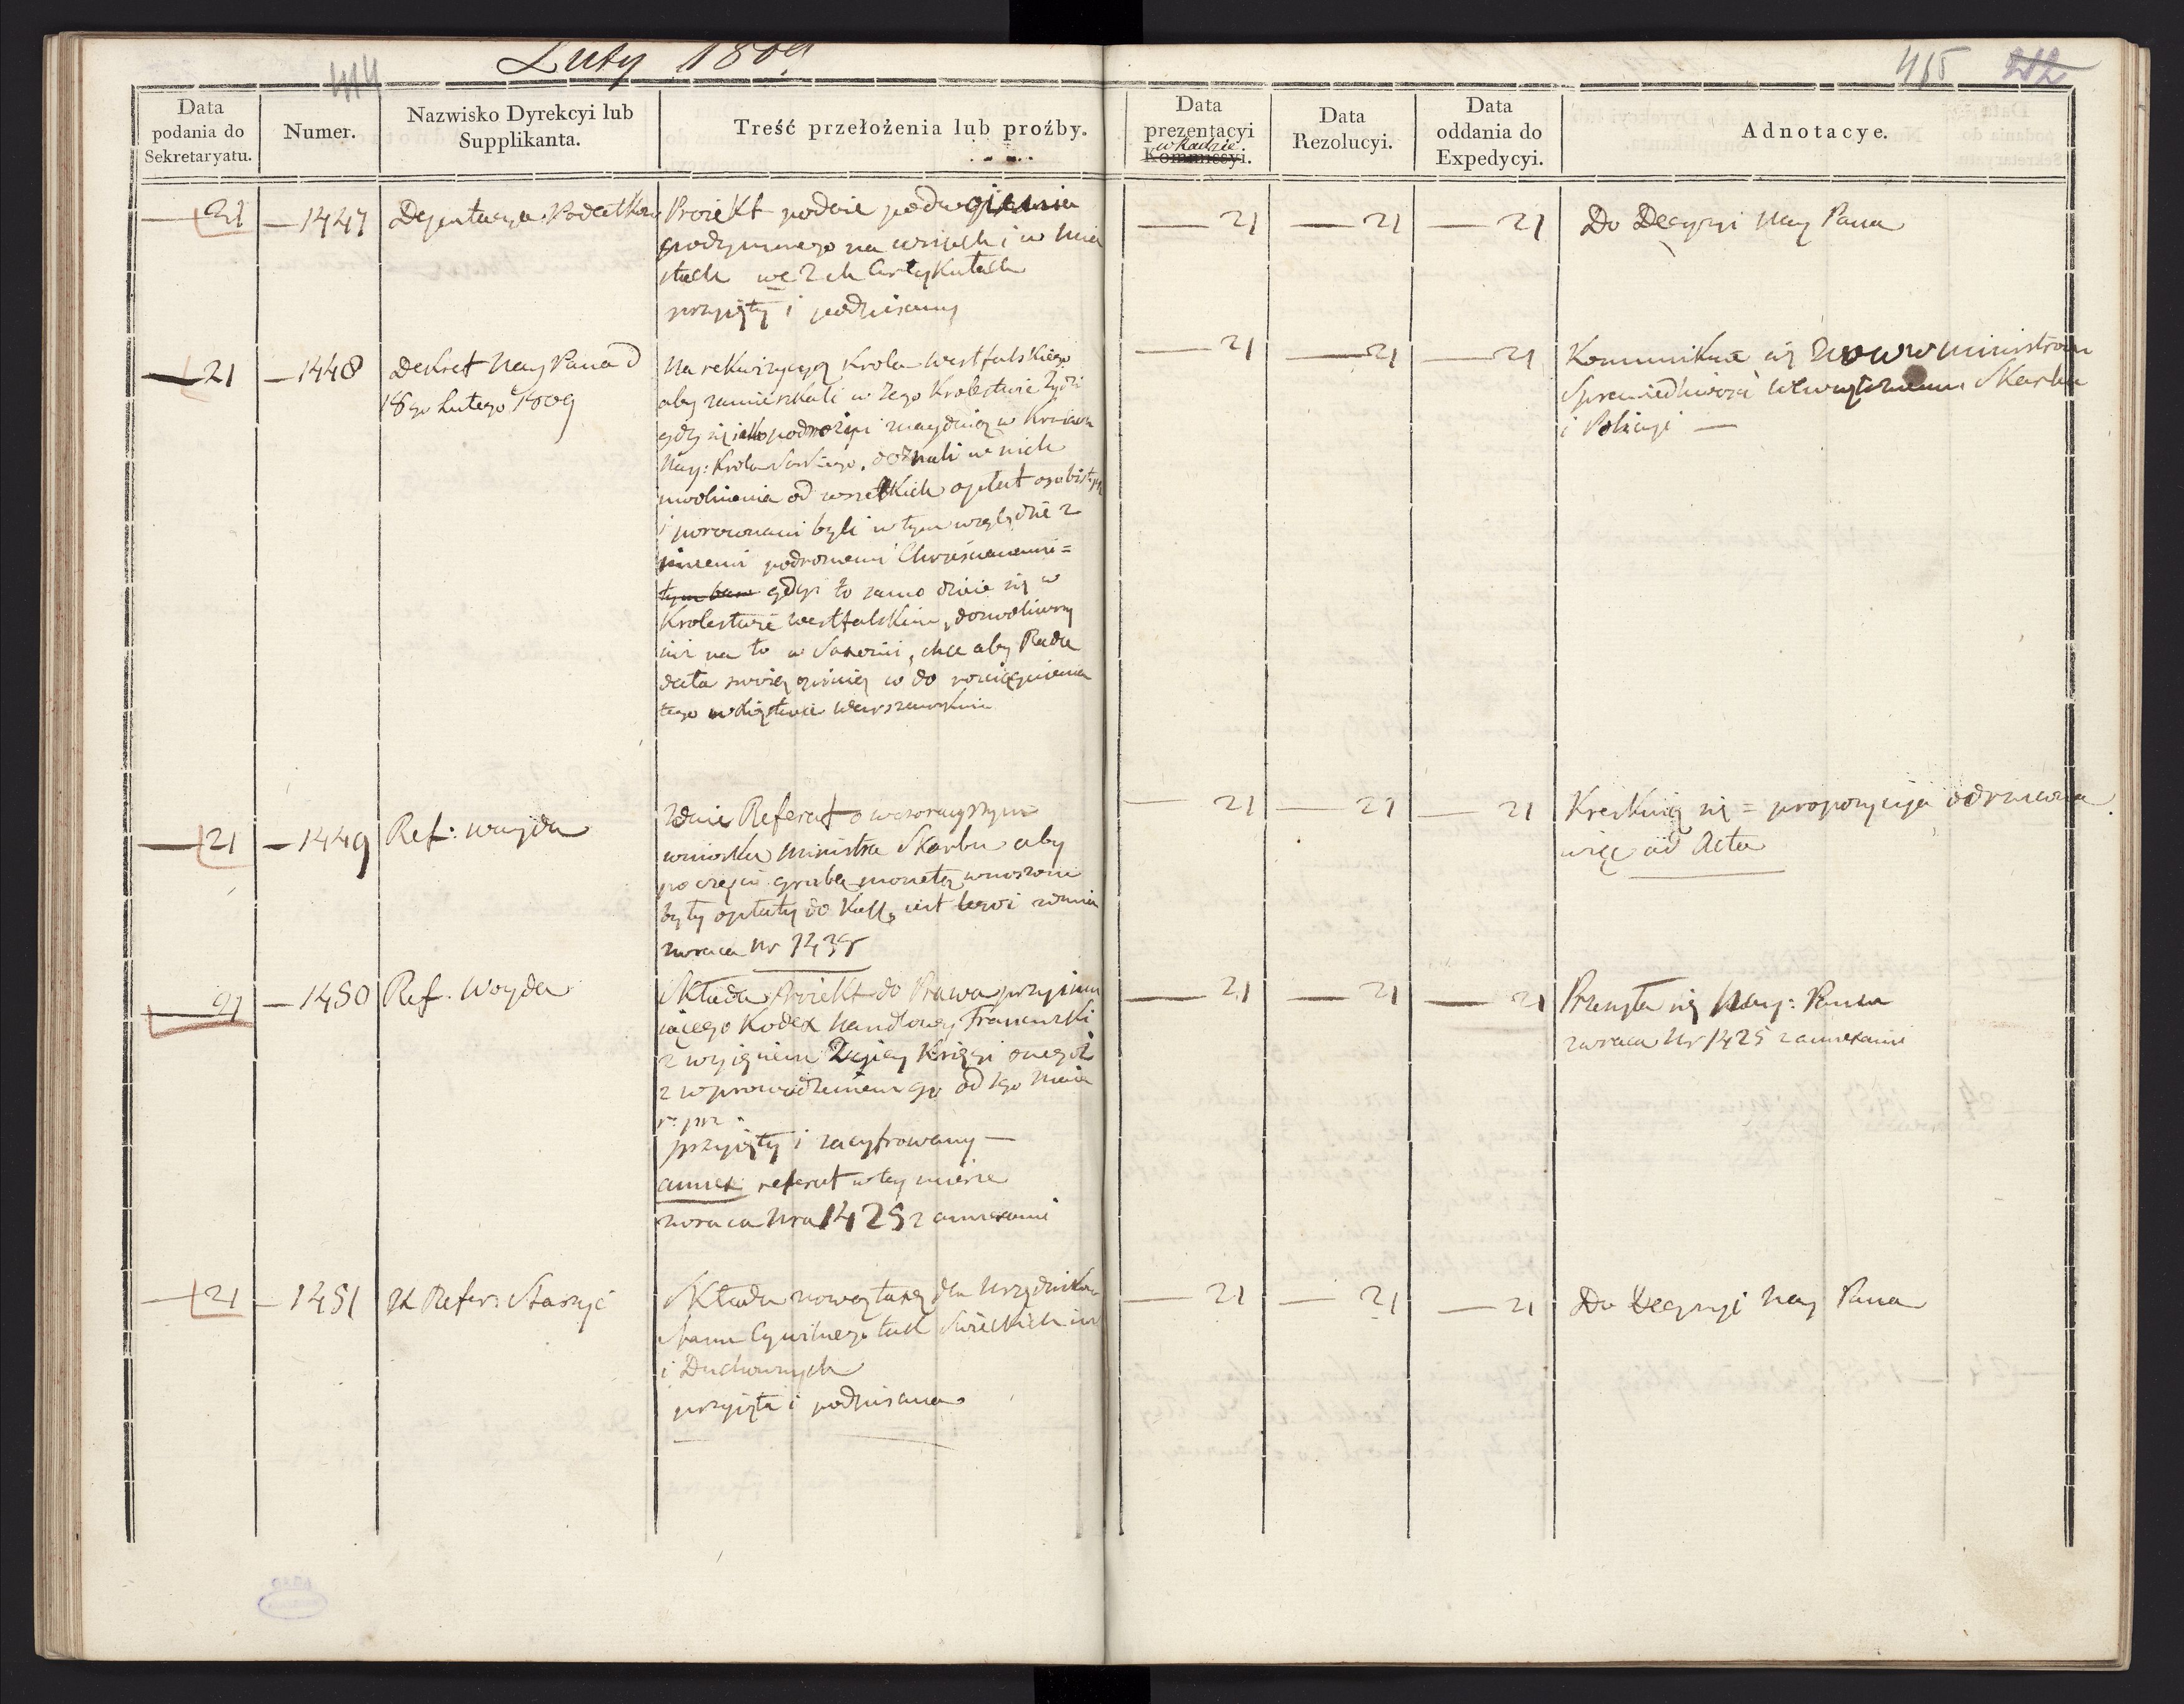 Luty 1809
414
415 212
Data podania do Sekretaryatu.
Numer.
Nazwisko Dyrekcyi lub Supplikanta.
Treść przełożenia lub proźby.
Data prezentacyi w Radzie. Kommissyi.
Data Rezolucyi.
Data oddania do Expedycyi.
Adnotacye.
21 — 1447
Deputacya Podatkow
Proiekt podaie
podymnego na wsiach i w mia
stach we 2ch Artykułach
przyięty i podpisany
— 21 — 21 — 21
Do Decyzyi Nay Pana
— 21 — 1448
Dekret Nay Pana d
18go Lutego 1809
Na rekwizycyą Krola Westfalskiego
aby zamieszkali w Jego Krolestwie Żydzi
gdy się iako podrożni znayduią w Kraiach
Nay: Krola Saskiego, doznali w nich
uwolnienia od wszelkich opłat osobistych
i porownani byli w tym względzie z
innemi podroznemi Chrześcianami =
gdyż to samo dzieie się w
Krolestwie Westfalskim, dozwoliwszy
iuż na to w Saxonii, chce aby Rada
dała swoię opinią co do rozciągnienia
tego w Xięstwie Warszawskim
— 21 — 21 — 21
Kommunikuie się Ministrom
Sprawiedliwości Wewnętrznemu Skarbu
i Policyi —
— 21 — 1449
Ref: Woyda
Zdaie Referat o wczorayszym
wniosku Ministra Skarbu aby
po części grubą monetą wnoszone
były opłaty do Kass,
zwraca Nr 1438
— 21 — 21 — 21
Kreskuią się = propozycyia odrzucona
więc ad Acta
— 21 — 1450
Ref. Woyda
Składa Proiekt do Prawa przyimu
iącego Kodex Handlowy Francuzki
z wyięciem Księgi onegoż
z wprowadzeniem go od 1go Maia
r: prz:
przyięty i zacyfrowany —
annex referat w tey mierze
zwraca Nra 1425 z annexami
— 21 — 21 — 21
Przesyła się Nay: Panu
zwraca Nr 1425 z annexami
— 21 — 1451
Refer: Staszyc
Składa nową taxę dla Urzędnikow
Stanu Cywilnego tak Świeckich iak
i Duchownych
przyięta i podpisana
— 21 — 21 — 21
Do Decyzyi Nay Pana